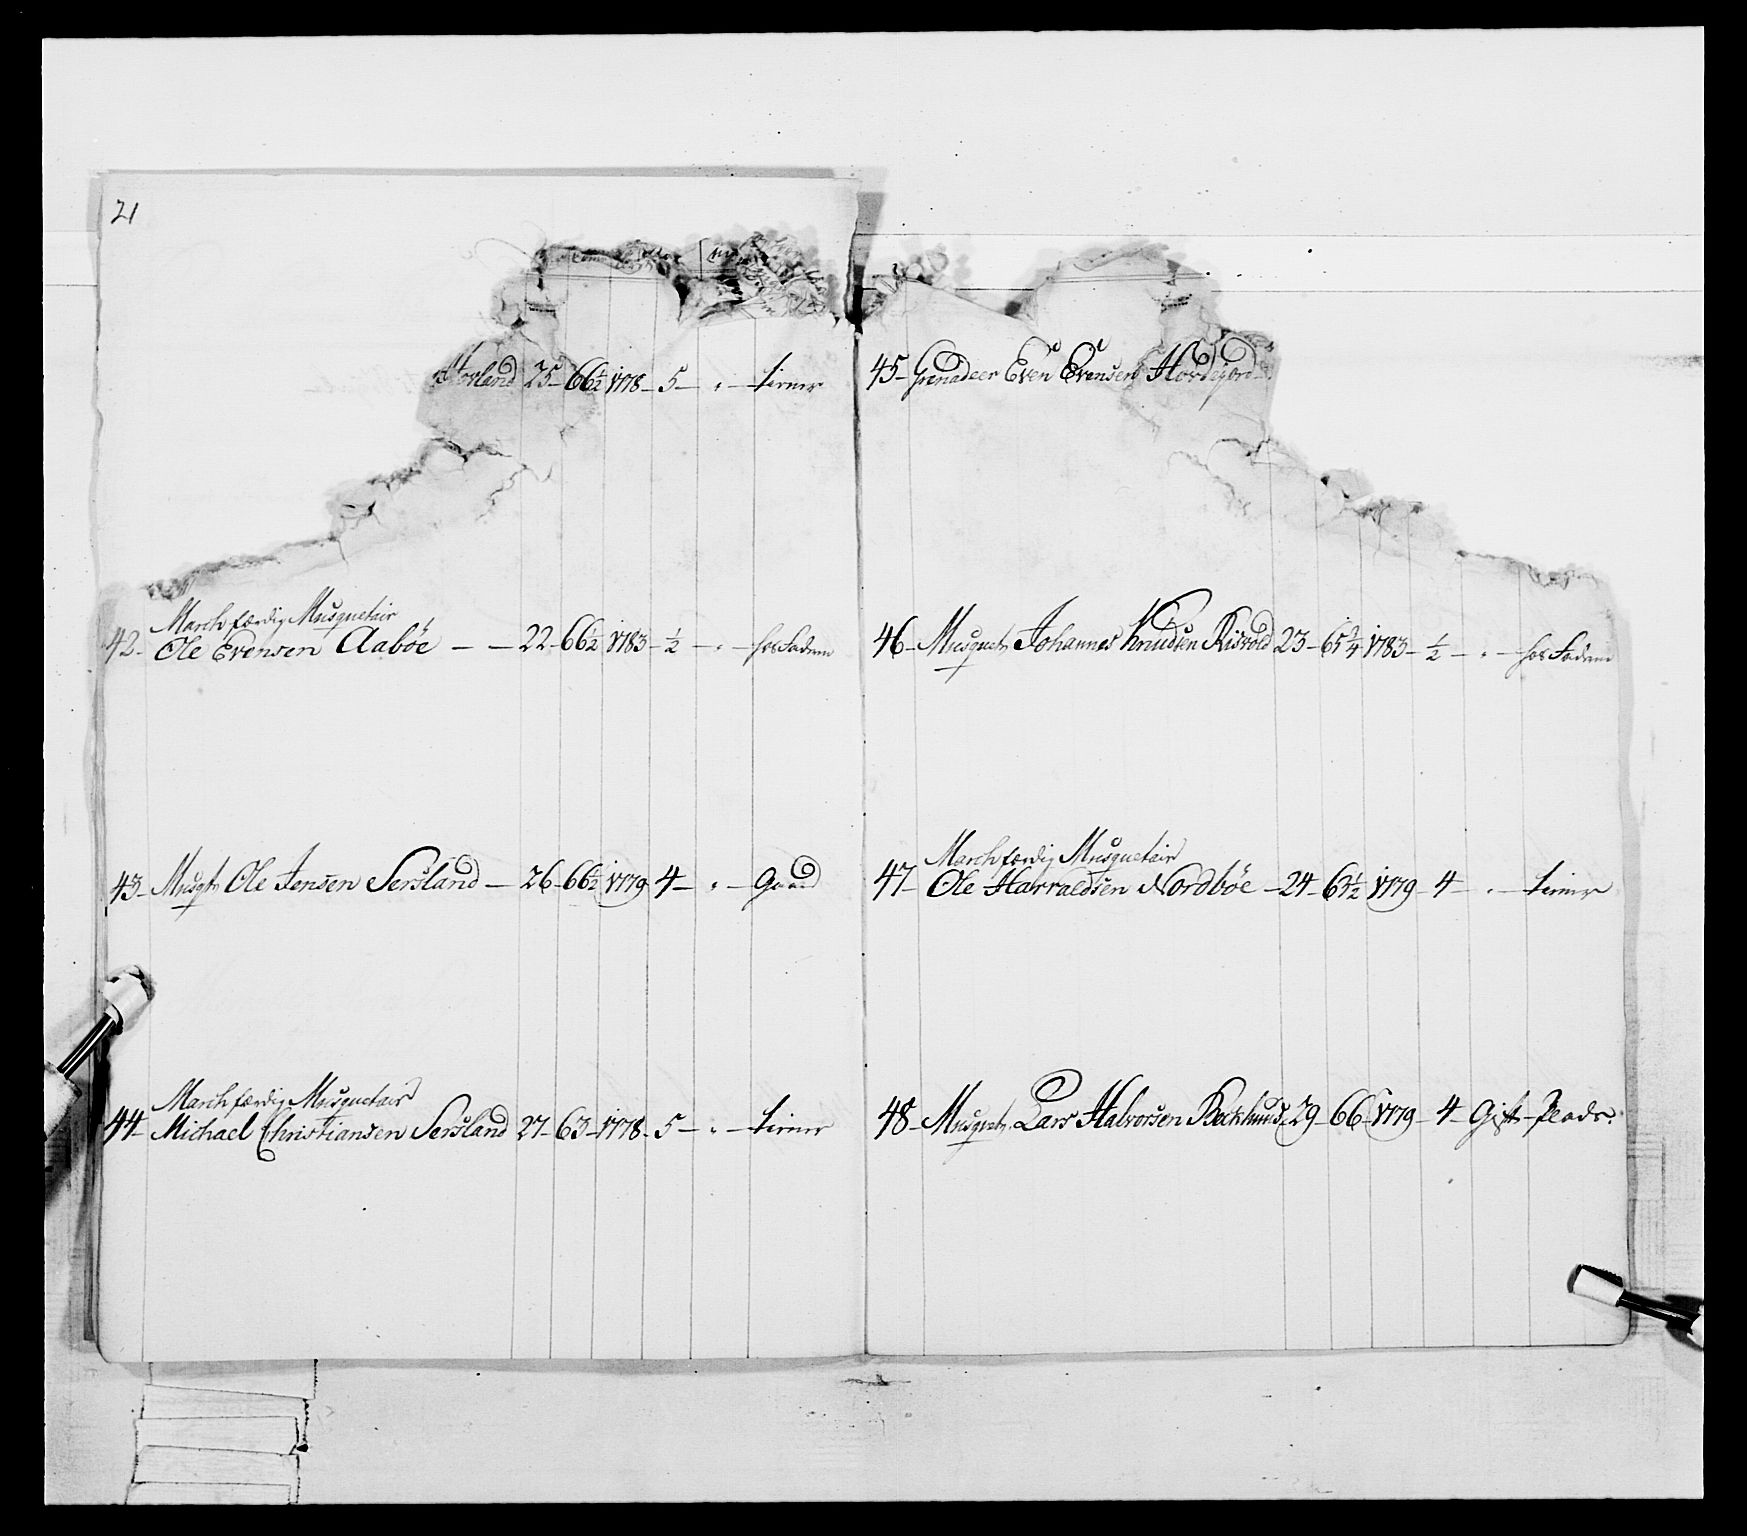 21
Hovland 25 - 66½ 1778 - 5 - " - tiener
March færdig Musquetair
42 - Ole Evensen Aaböe - - 22 - 66½ 1783 - ½ - " - hos Faderen
43 - Musqtr Ole Jensen Sersland - 26 - 66½ 1779 4 - " - Gaard
March færdig Musquetair
44 - Michael Christiansen Sersland 27 - 63 - 1778 - 5 - " - tiener
45 - Grenadeer Even Evensen
46 - Musquetr Johannes Knudsen Risvold 23 - 65¾ 1783 - ½ - " - hos Faderen
March færdig Musquetair
47 - Ole Harraldsen Nordböe - 24 - 65½ 1779 - 4 - " - tiener
48 - Musquetr Lars Halvorsen 29 - 66 - 1779 - 4 - Gift - Plads